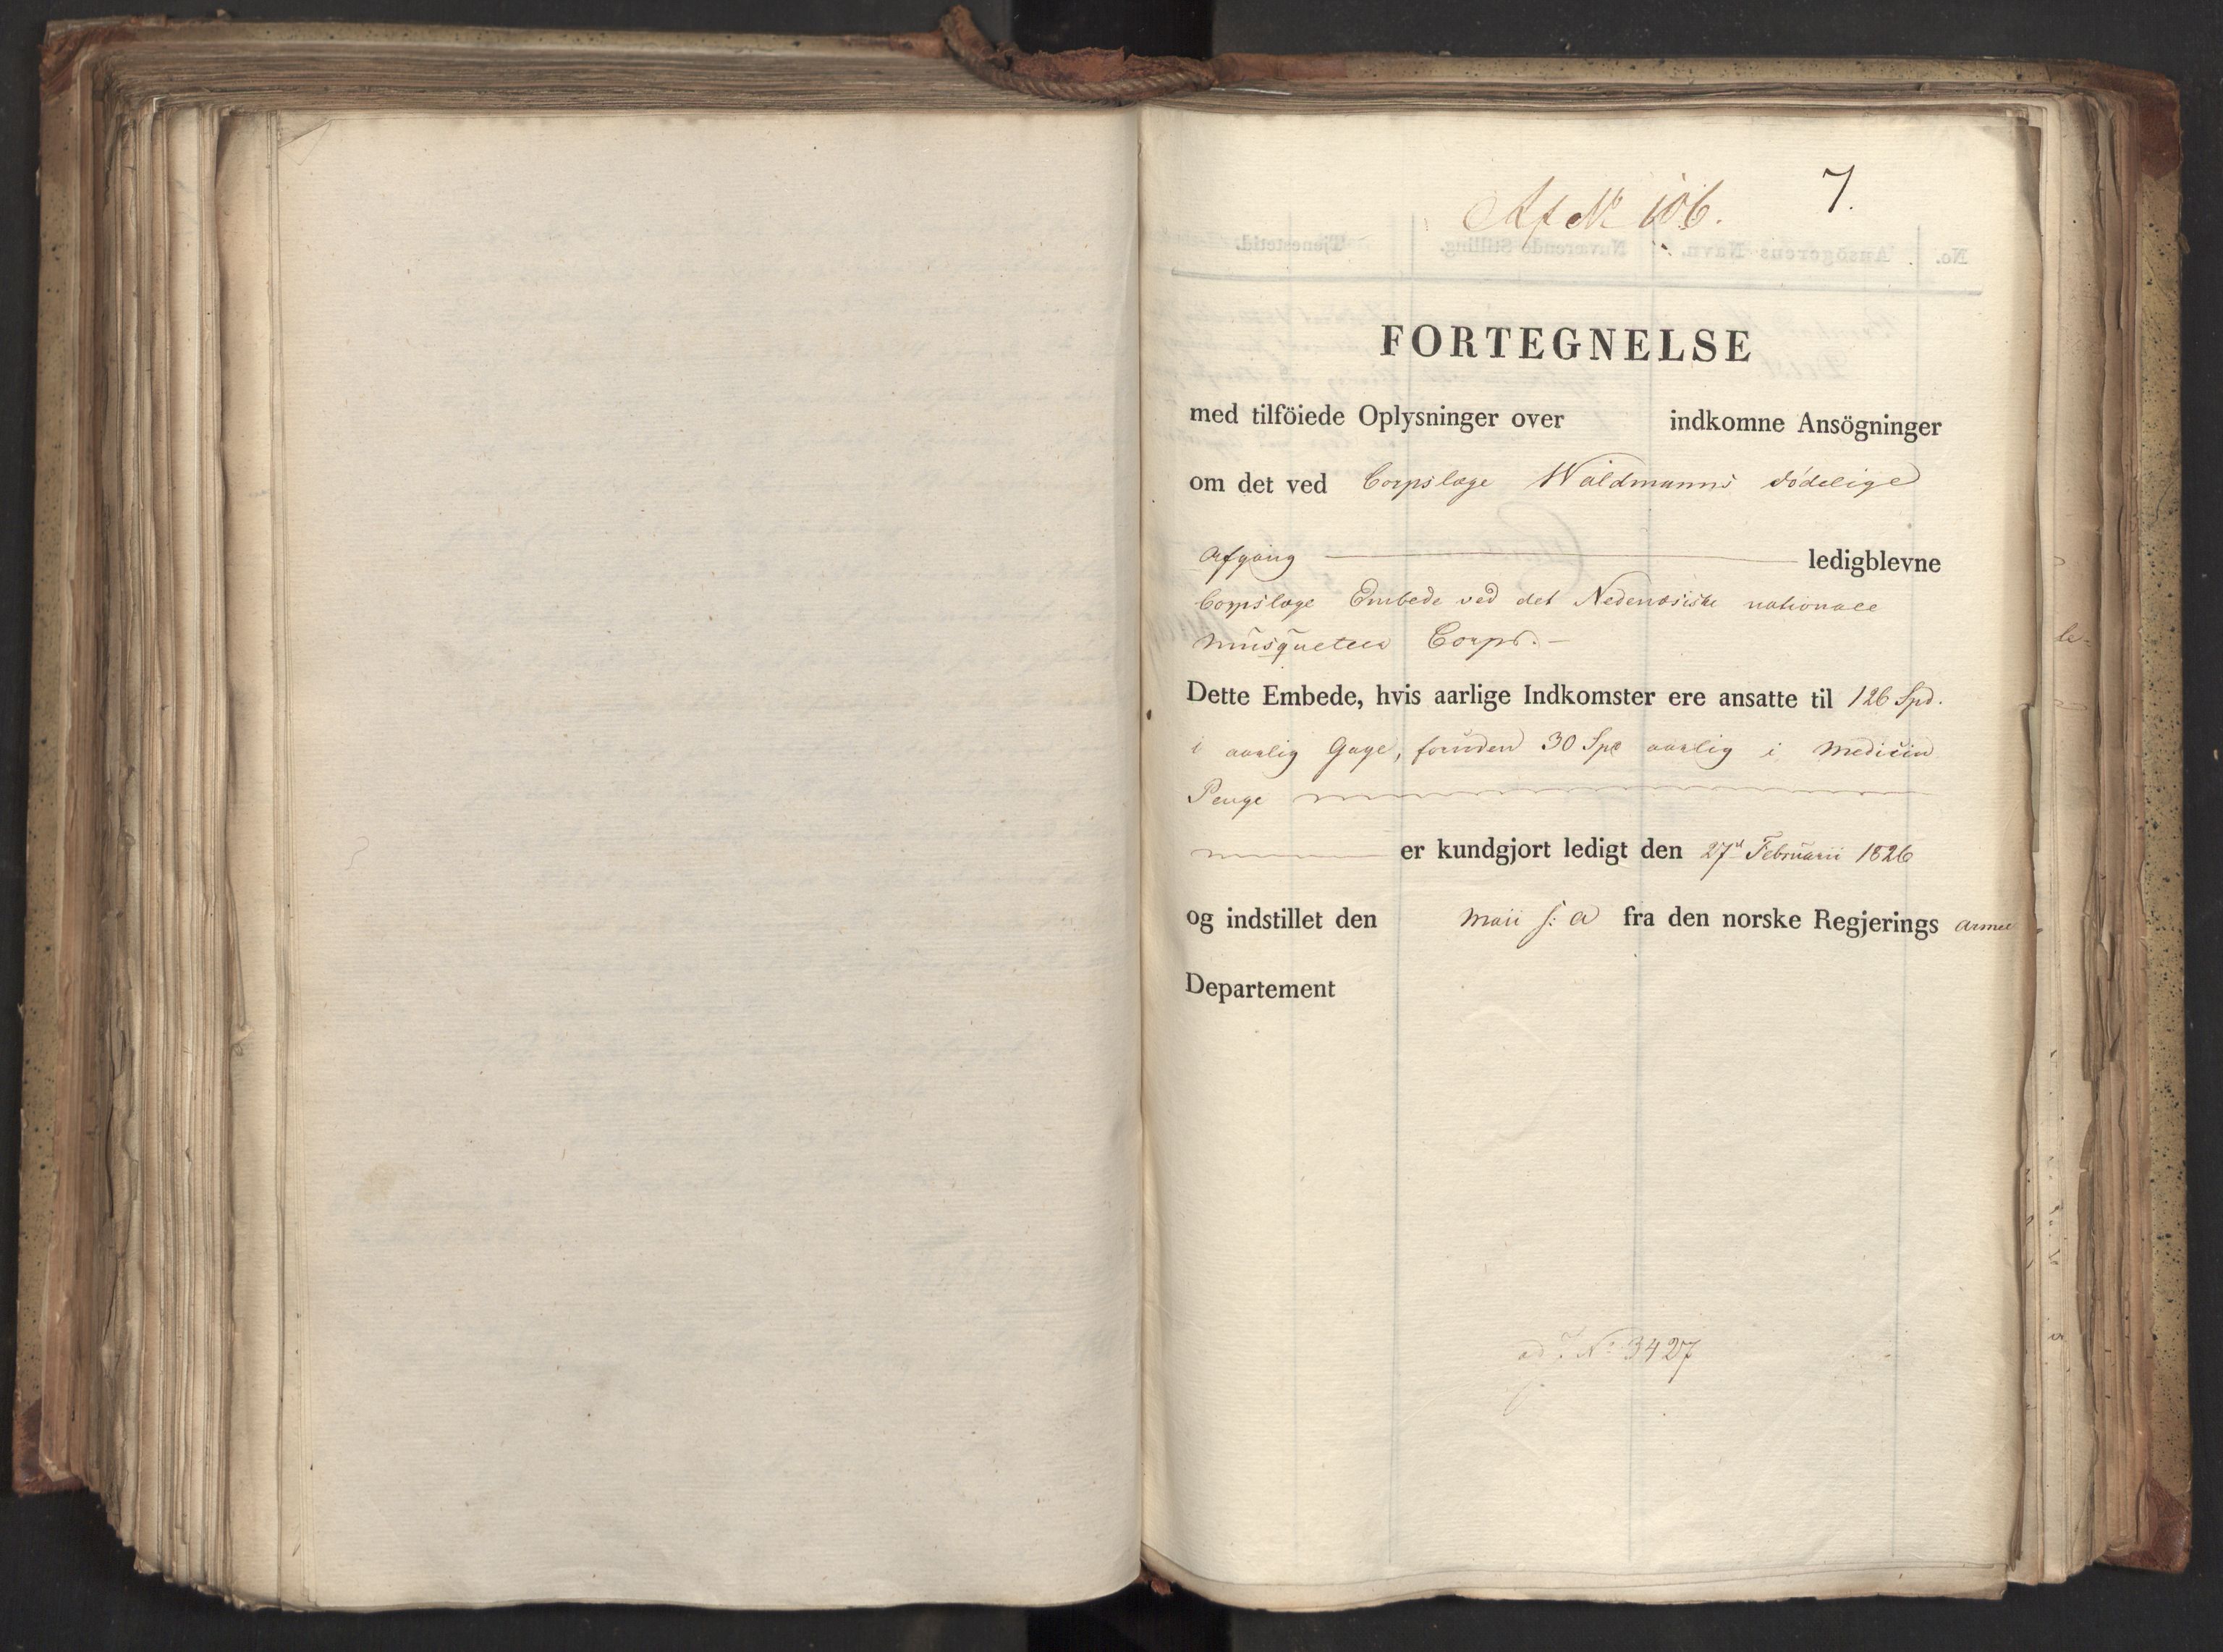 Af No 106.
7.
FORTEGNELSE
med tilföiede Oplysninger over indkomne Ansögninger
om det ved Corpslæge Waldmanns dödelige
Afgang ledigblevne
Corpslæge Embede ved det Nedenæsiske nationale
Musqueteer Corps.-
Dette Embede, hvis aarlige Indkomster ere ansatte til 126 Spd.
i aarlig Gage, foruden 30 Spd aarlig i Medicin
Penge
er kundgjort ledigt den 27d Februarii 1826
og indstillet den Maii s: a fra den norske Regjerings Armee
Departement
No 3427